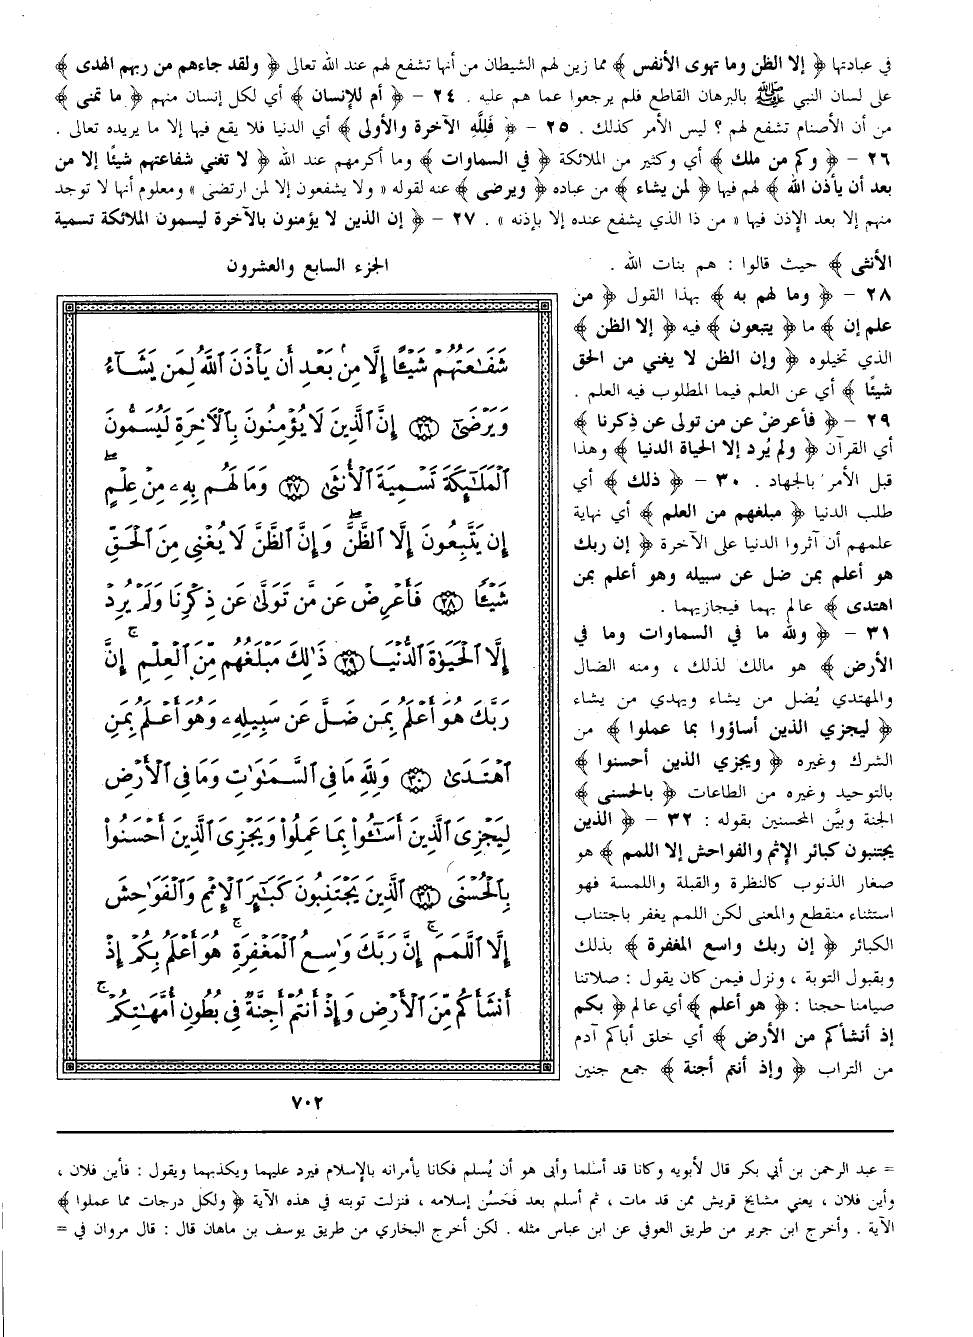 في عبادتها ﴿ إلا الظن وما تهوى الأنفس ﴾ مما زين لهم الشيطان من أنها تشفع لهم عند الله تعالى ﴿ ولقد جاءهم من ربهم الهدى ﴾
على لسان النبي ﷺ بالبرهان القاطع فلم يرجعوا عما هم عليه . ٢٤ – ﴿ أم للإنسان ﴾ أي لكل إنسان منهم ﴿ ما تمنى ﴾
من أن الأصنام تشفع لهم ؟ ليس الأمر كذلك . ٢٥ – ﴿ فَلِلَّهِ الآخرة والأولى ﴾ أي الدنيا فلا يقع فيها إلا ما يريده تعالى .
٢٦ – ﴿ وكم من ملك ﴾ أي وكثير من الملائكة ﴿ في السماوات ﴾ وما أكرمهم عند الله ﴿ لا تغني شفاعتهم شيئًا إلا من
بعد أن يأذن الله ﴾ لهم فيها ﴿ لمن يشاء ﴾ من عباده ﴿ ويرضى ﴾ عنه لقوله « ولا يشفعون إلا لمن ارتضى » ومعلوم أنها لا توجد
منهم إلا بعد الإذن فيها « من ذا الذي يشفع عنده إلا بإذنه » . ٢٧ – ﴿ إن الذين لا يؤمنون بالآخرة ليسمون الملائكة تسمية
الأنثى ﴾ حيث قالوا : هم بنات الله .
٢٨ – ﴿ وما لهم به ﴾ بهذا القول ﴿ من
علم إن ﴾ ما ﴿ يتبعون ﴾ فيه ﴿ إلا الظن ﴾
الذي تخيلوه ﴿ وإن الظن لا يغني من الحق
شيئًا ﴾ أي عن العلم فيما المطلوب فيه العلم .
٢٩ – ﴿ فأعرضْ عن من تولى عن ذِكرنا ﴾
أي القرآن ﴿ ولم يُرد إلا الحياة الدنيا ﴾ وهذا
قبل الأمر بالجهاد . ٣٠ – ﴿ ذلك ﴾ أي
طلب الدنيا ﴿ مبلغهم من العلم ﴾ أي نهاية
علمهم أن آثروا الدنيا على الآخرة ﴿ إن ربك
هو أعلم بمن ضل عن سبيله وهو أعلم بمن
اهتدى ﴾ عالم بهما فيجازيهما .
٣١ – ﴿ ولله ما في السماوات وما في
الأرض ﴾ هو مالك لذلك ، ومنه الضال
والمهتدي يُضل من يشاء ويهدي من يشاء
﴿ ليجزي الذين أساؤوا بما عملوا ﴾ من
الشرك وغيره ﴿ ويجزي الذين أحسنوا ﴾
بالتوحيد وغيره من الطاعات ﴿ بالحسنى ﴾
الجنة وبيَّن المحسنين بقوله : ٣٢ – ﴿ الذين
يجتنبون كبائر الإثم والفواحش إلا اللمم ﴾ هو
صغار الذنوب كالنظرة والقبلة واللمسة فهو
استثناء منقطع والمعنى لكن اللمم يغفر باجتناب
الكبائر ﴿ إن ربك واسع المغفرة ﴾ بذلك
وبقبول التوبة ، ونزل فيمن كان يقول : صلاتنا
صيامنا حجنا : ﴿ هو أعلم ﴾ أي عالم ﴿ بكم
إذ أنشأكم من الأرض ﴾ أي خلق أباكم آدم
من التراب ﴿ وإذ أنتم أجنة ﴾ جمع جنين
الجزء السابع والعشرون
شَفَـٰعَتُهُمْ شَيْـًٔا إِلَّا مِنۢ بَعْدِ أَن يَأْذَنَ ٱللَّهُ لِمَن يَشَآءُ
وَيَرْضَىٰٓ ﴿٢٦﴾ إِنَّ ٱلَّذِينَ لَا يُؤْمِنُونَ بِٱلْـَٔاخِرَةِ لَيُسَمُّونَ
ٱلْمَلَـٰٓئِكَةَ تَسْمِيَةَ ٱلْأُنثَىٰ ﴿٢٧﴾ وَمَا لَهُم بِهِۦ مِنْ عِلْمٍ ۖ
إِن يَتَّبِعُونَ إِلَّا ٱلظَّنَّ ۖ وَإِنَّ ٱلظَّنَّ لَا يُغْنِى مِنَ ٱلْحَقِّ
شَيْـًٔا ﴿٢٨﴾ فَأَعْرِضْ عَن مَّن تَوَلَّىٰ عَن ذِكْرِنَا وَلَمْ يُرِدْ
إِلَّا ٱلْحَيَوٰةَ ٱلدُّنْيَا ﴿٢٩﴾ ذَٰلِكَ مَبْلَغُهُم مِّنَ ٱلْعِلْمِ ۚ إِنَّ
رَبَّكَ هُوَ أَعْلَمُ بِمَن ضَلَّ عَن سَبِيلِهِۦ وَهُوَ أَعْلَمُ بِمَنِ
ٱهْتَدَىٰ ﴿٣٠﴾ وَلِلَّهِ مَا فِى ٱلسَّمَـٰوَٰتِ وَمَا فِى ٱلْأَرْضِ
لِيَجْزِىَ ٱلَّذِينَ أَسَـٰٓـُٔوا۟ بِمَا عَمِلُوا۟ وَيَجْزِىَ ٱلَّذِينَ أَحْسَنُوا۟
بِٱلْحُسْنَى ﴿٣١﴾ ٱلَّذِينَ يَجْتَنِبُونَ كَبَـٰٓئِرَ ٱلْإِثْمِ وَٱلْفَوَٰحِشَ
إِلَّا ٱللَّمَمَ ۚ إِنَّ رَبَّكَ وَٰسِعُ ٱلْمَغْفِرَةِ ۚ هُوَ أَعْلَمُ بِكُمْ إِذْ
أَنشَأَكُم مِّنَ ٱلْأَرْضِ وَإِذْ أَنتُمْ أَجِنَّةٌ فِى بُطُونِ أُمَّهَـٰتِكُمْ ۚ
٧٠٢
= عبد الرحمن بن أبي بكر قال لأبويه وكانا قد أسلما وأبى هو أن يُسلم فكانا يأمرانه بالإسلام فيرد عليهما ويكذبهما ويقول : فأين فلان ،
وأين فلان ، يعني مشايخ قريش ممن قد مات ، ثم أسلم بعد فَحَسُن إسلامه ، فنزلت توبته في هذه الآية ﴿ ولكل درجات مما عملوا ﴾
الآية . وأخرج ابن جرير من طريق العوفي عن ابن عباس مثله . لكن أخرج البخاري من طريق يوسف بن ماهان قال : قال مروان في =